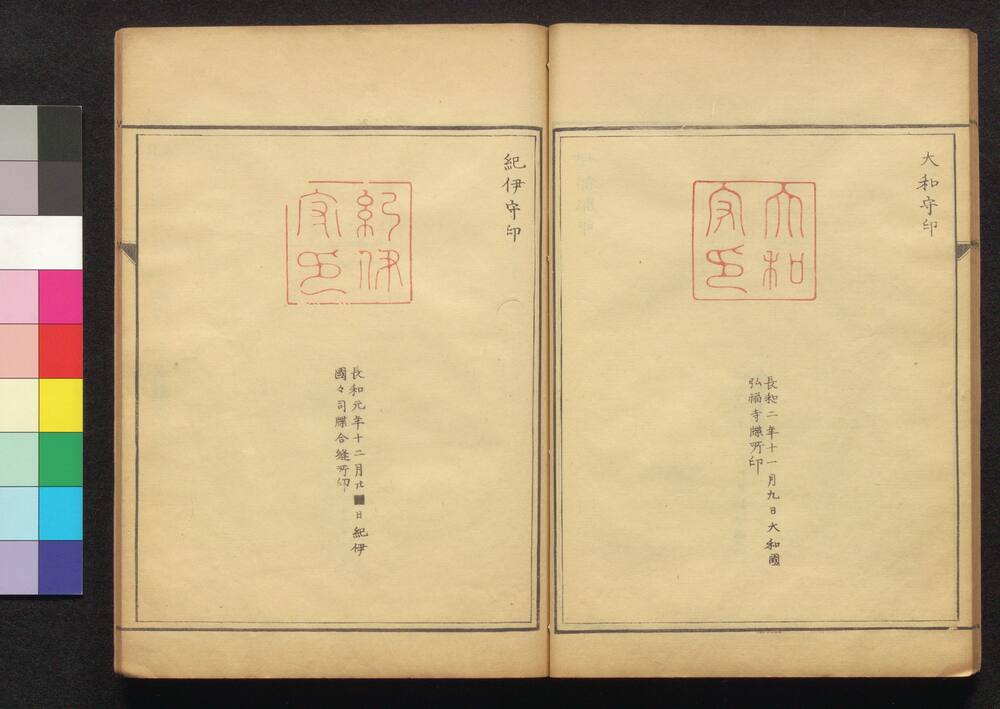 大和守印
大和
守印
長和二年十一月九日大和國
弘福寺牒所印
紀伊守印
紀伊
守印
長和元年十二月廿 日紀伊
國々司牒合縫所印